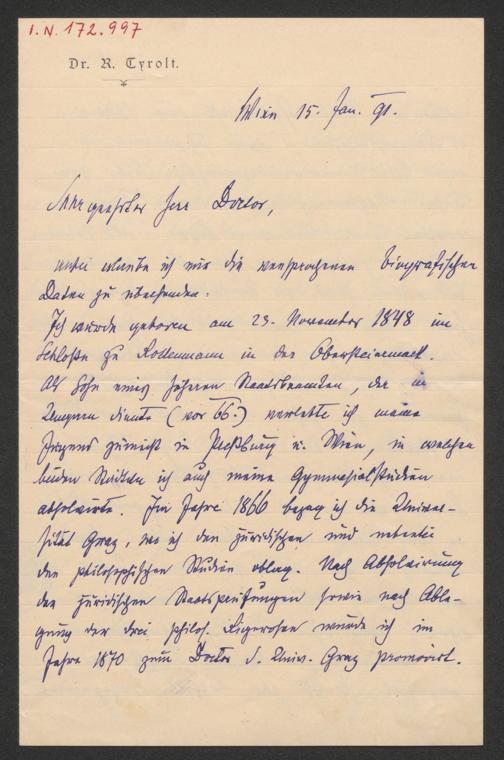 I.N. 172.997
Dr. R. Tyrolt.
Wien 15. Jan. 91.
Sehr geehrter Herr Doctor,
anbei erlaube ich mir die versprochenen biografischen
Daten zu übersenden:
Ich wurde geboren am 23. November 1848 im
Schloße zu Rottenmann in der Obersteiermark.
Als Sohn eines höheren Staatsbeamten, der in
Ungarn diente (vor 66.) verlebte ich meine
Jugend zumeist in Preßburg u. Wien, in welchen
beiden Städten ich auch meine Gymnasialstudien
absolvirte. Im Jahre 1866 bezog ich die Univer-
sität Graz, wo ich den juridischen und nebenbei
den philosophischen Studien oblag. Nach Absolvirung
der juridischen Staatsprüfungen sowie nach Able-
gung der drei philos. Rigorosen wurde ich im
Jahre 1870 zum Doctor d. Univ. Graz promovirt.